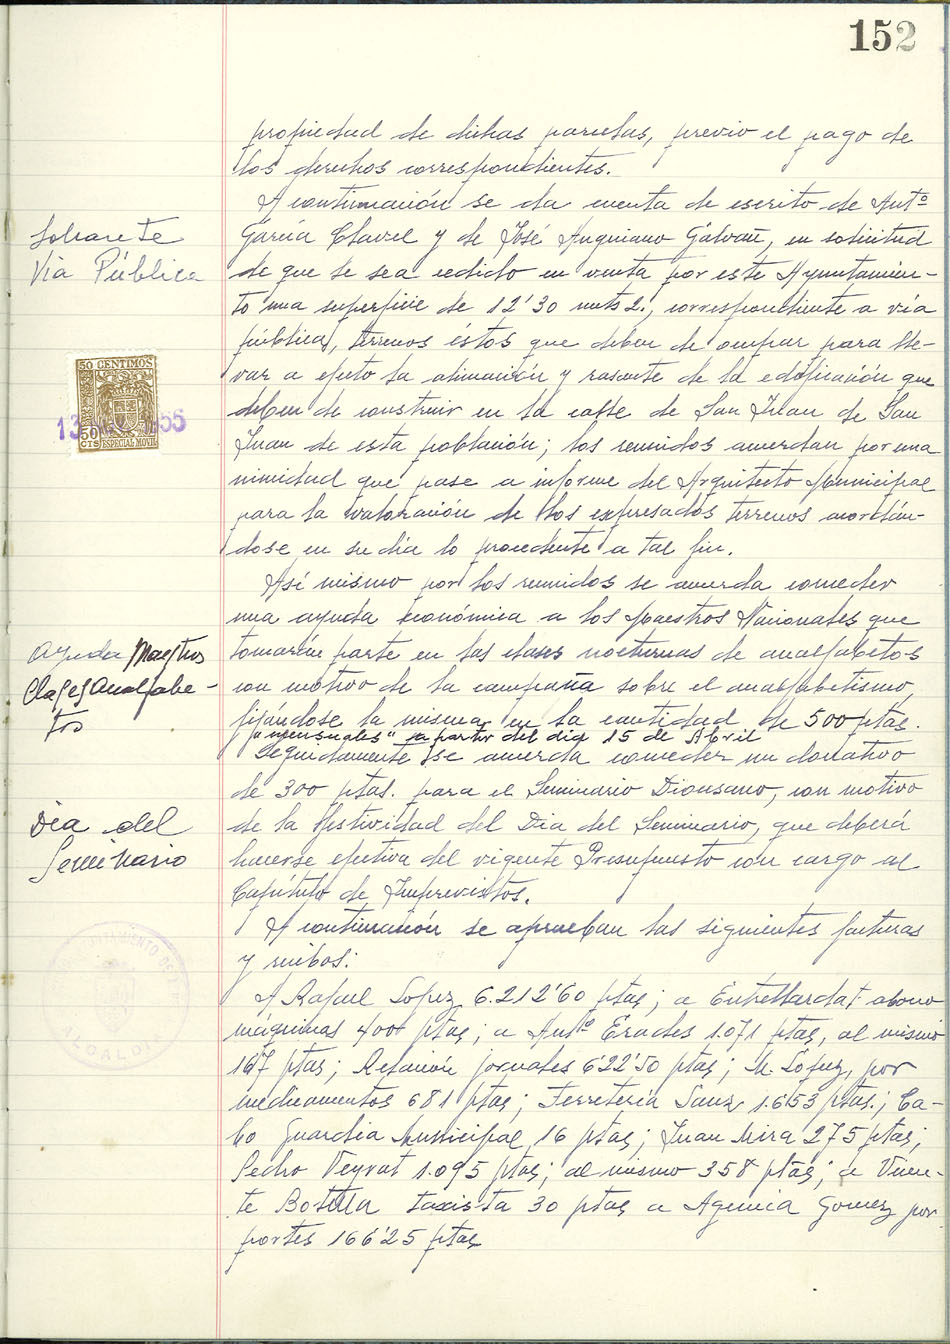 152
propiedad de dichas parcelas, previo el pago de
los derechos correspondientes.
A continuación se da cuenta de escrito de Antº
Sobrante
Vía Pública
García Clavel y de José Anguiano Galvañ, en solicitud
de que se sea cedido en venta por este Ayuntamien-
to una superficie de 12'30 mts2., correspondiente a vía
pública, terrenos éstos que deben de ocupar para lle-
var a efecto la alineación y rasante de la edificación que
deben de construir en la calle de San Juan de San
Juan de esta población; los reunidos acuerdan por una
nimidad que pase a informe del Arquitecto Municipal
para la valoración de los expresados terrenos acordán-
dose en su día lo procedente a tal fin.
50 CENTIMOS
50 CTS ESPECIAL MOVIL
Así mismo por los reunidos se acuerda conceder
una ayuda económica a los Maestros Nacionales que
Ayuda Maestros
Clases Analfabe-
tos
tomarán parte en las clases nocturnas de analfabetos
con motivo de la campaña sobre el analfabetismo,
fijándose la misma en la cantidad de 500 ptas.
"mensuales" a partir del dia 15 de Abril
Seguidamente se acuerda conceder un donativo
de 300 ptas. para el Seminario Diocesano, con motivo
Dia del
Seminario
de la festividad del Dia del Seminario, que deberá
hacerse efectiva del vigente Presupuesto con cargo al
Capítulo de Imprevistos.
A continuación se aprueban las siguientes facturas
y recibos:
A Rafael Lopez 6.212'60 ptas; a abono
máquinas 400 ptas; a Antº Erades 1.071 ptas, al mismo
167 ptas; Relación jornales 622'50 ptas; M. Lopez, por
medicamentos 681 ptas; Ferreteria Sanz 1.653 ptas.; Ca-
bo Guardia Municipal 16 ptas; Juan Mira 275 ptas;
Pedro Veyrat 1.095 ptas; al mismo 358 ptas; a Vicen-
te Botella taxista 30 ptas a Agencia Gomez por
portes 166'25 ptas
AYUNTAMIENTO DE
ALCALDIA